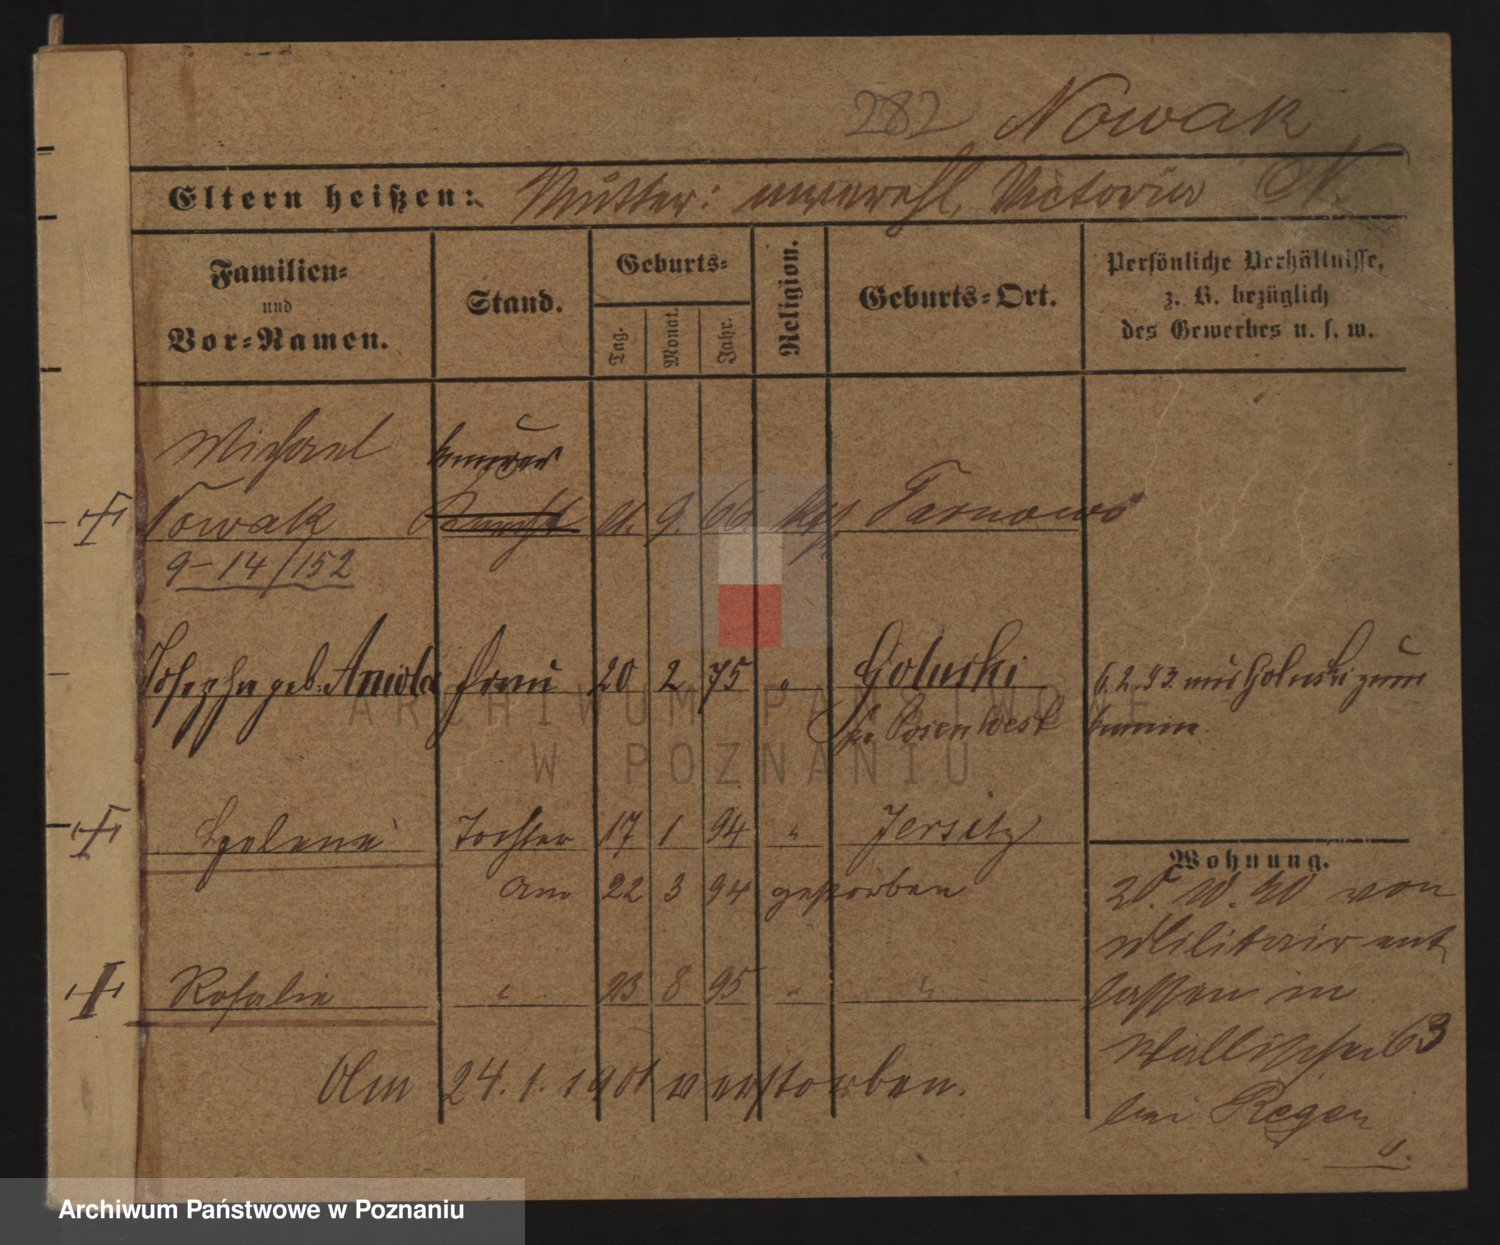 282 Nowak
Eltern heißen: Mutter: unverehl. Victoria N.
Familien=
und
Vor=Namen.
Stand.
Geburts=
Tag.
Monat.
Jahr.
Religion.
Geburts=Ort.
Persönliche Verhältnisse,
z. B. bezüglich
des Gewerbes u. s. w.
Michael
Nowak 9. 66. Tarnowo
9–14/152
Josepha geb: Aniola Frau 20 2 75 " Goluski
Posen West
6.2.93. aus Goluski zum
Helene Tochter 17 1 94 " Jersitz
am 22 3 94 gestorben
Rosalie " 23 8 95 " "
Am 24. 1. 1901 verstorben.
Wohnung.
20. 10. 90 von
Militair ent
lassen in
Wallischei 63
bei Regen
ARCHIWUM PAŃSTWOWE
W POZNANIU
Archiwum Państwowe w Poznaniu